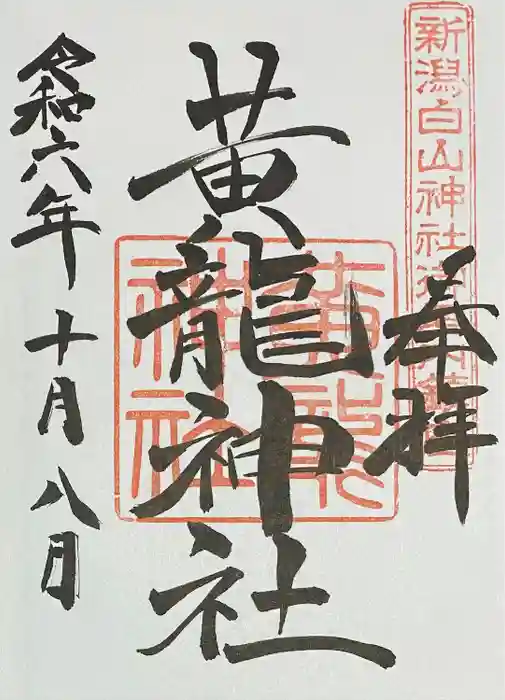 新潟白山神社御
奉拝
黄龍神社
黄龍神社
令和六年十月八日